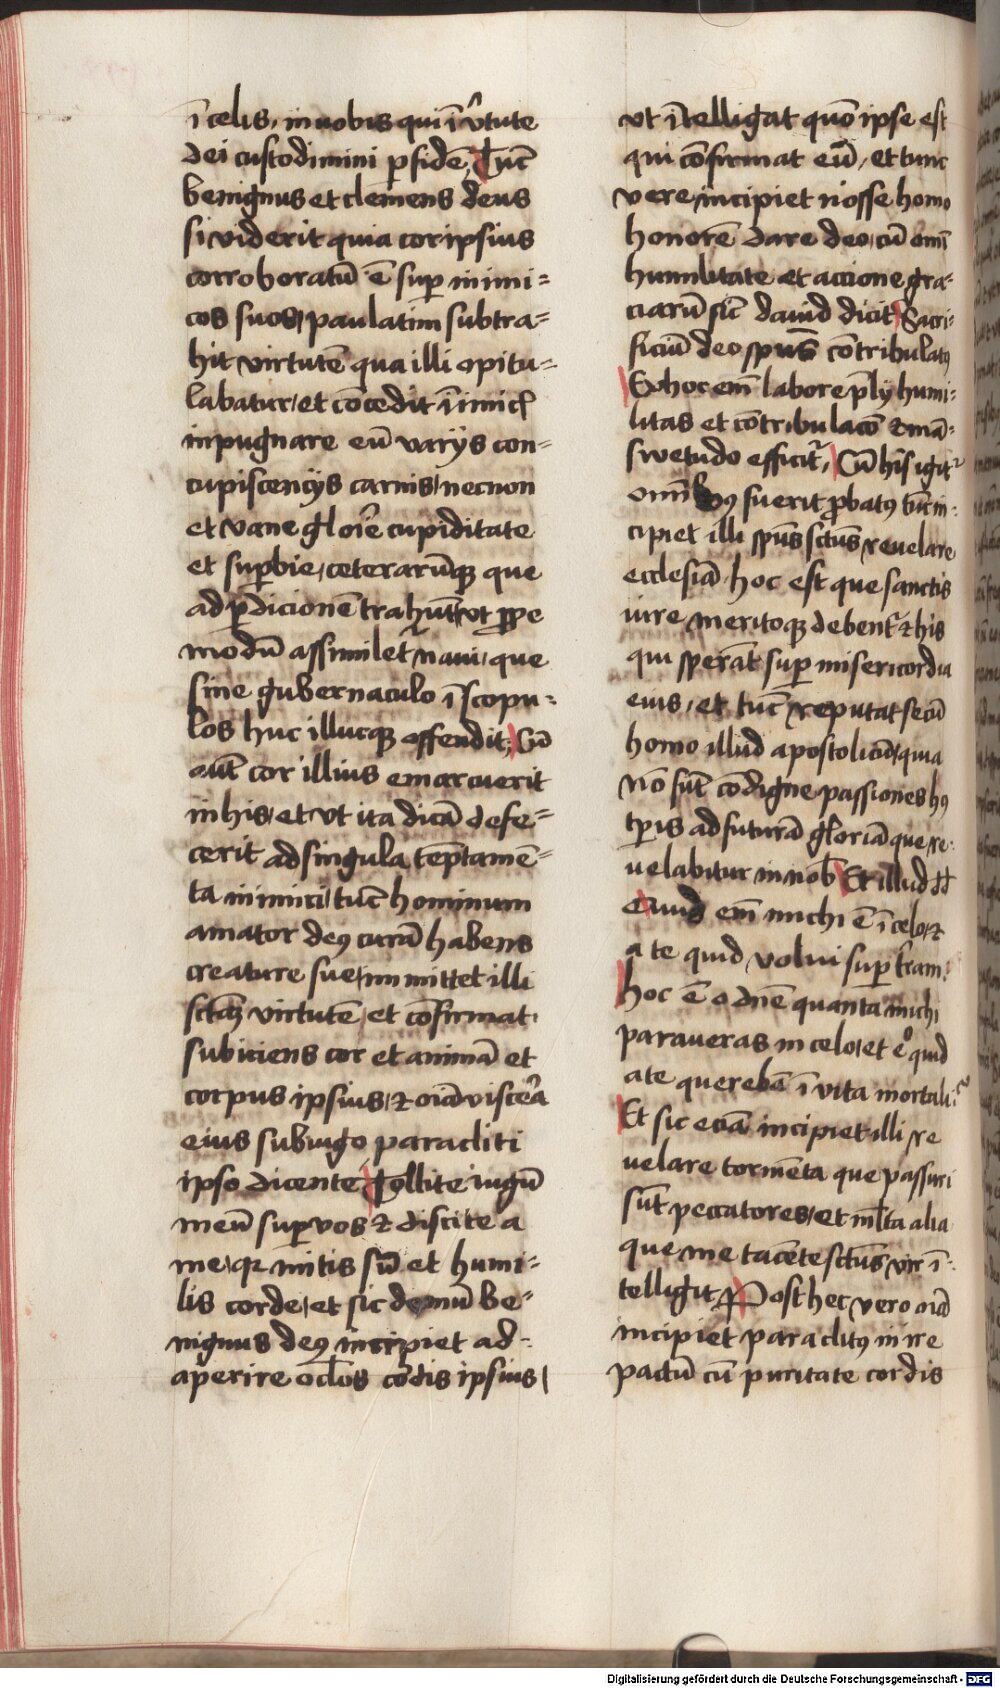 ī celis, in uobis qui ī v̾tute
dei custodimini ꝑ fidē, Tūc
benignus et clemens deus
si viderit quia cor ipsius
corroboratū ē suꝑ inimi=
cos suos, paulatim subtra=
hit virtutē qua illi opitu=
labatur, et cōcedit īimicꝭ
inpugnare eū varijs con=
cupiscencijs carnis, necnon
et vane glorīe cupiditate
et suꝑbie, ceterarūqꝫ que
ad ꝑdicionē trahūt, vt ꝓpe
modū assimilet᷑ naui, que
sine gubernaculo ī scopu=
los huc illucqꝫ offendit, Cū
aūt cor illius emarcuerit
in his, et vt ita dicā defe=
cerit ad singula tēptamē=
ta inimici, tūc hominum
amator deꝰ curā habens
creature sue, inmittet illi
sctāꝫ virtutē, et cōfirmat,
subiciens cor et animā et
corpus ipsius, ⁊ oīa viscēa
eius sub iugo paracliti
ipso dicente, Tollite iugū
meū suꝑ vos ⁊ discite a
me, qꝛ mitis sū et humi=
lis corde, et sic demū be=
nignus deꝰ incipiet ad=
aperire oclōs cōdis ipsius,
vt ītelligat quō ipse est
qui cōfirmat eū, et tunc
vere incipiet nosse homo
honorē dare deo, cū omī
humilitate et accione gra=
ciarū sic̄ dauid dicit Sacri=
ficiū deo spūs cōtribulatꝰ
Ex hoc em̄ labore p̄ly humi=
litas et cōtribulacō ⁊ mā=
swetudo efficit᷑, Cū his igit᷑
omībꝰ fuerit ꝓbatꝰ tūc in=
cipiet illi spūs sctūs reuelare
ecclesiā hoc est que sanctis
iure meritoqꝫ debent᷑ ⁊ his
qui sperāt suꝑ misericordia
eius, et tūc reputat secū
homo illud apostolicū, quia
nō sūt cōdigne passiones hꝰ
tꝑis ad futurā gloriā que re=
uelabitur in nob̄ Et illud dd
Quid em̄ michi ē ī celo, ⁊
a te quid volui suꝑ t̄ram,
hoc ē o dn̄e quanta michi
paraueras in celo, et e° quid
a te querebā ī vita mortali,
Et sic eciā incipiet illi re
uelare tormēta que passuri
sūt peccatores, et ml̄ta alia
que me tacēte sctūs vir ī=
telligit, Post hec vero oīa
incipiet paraclitꝰ inire
pactū cū puritate cordis
Digitalisierung gefördert durch die Deutsche Forschungsgemeinschaft - DFG